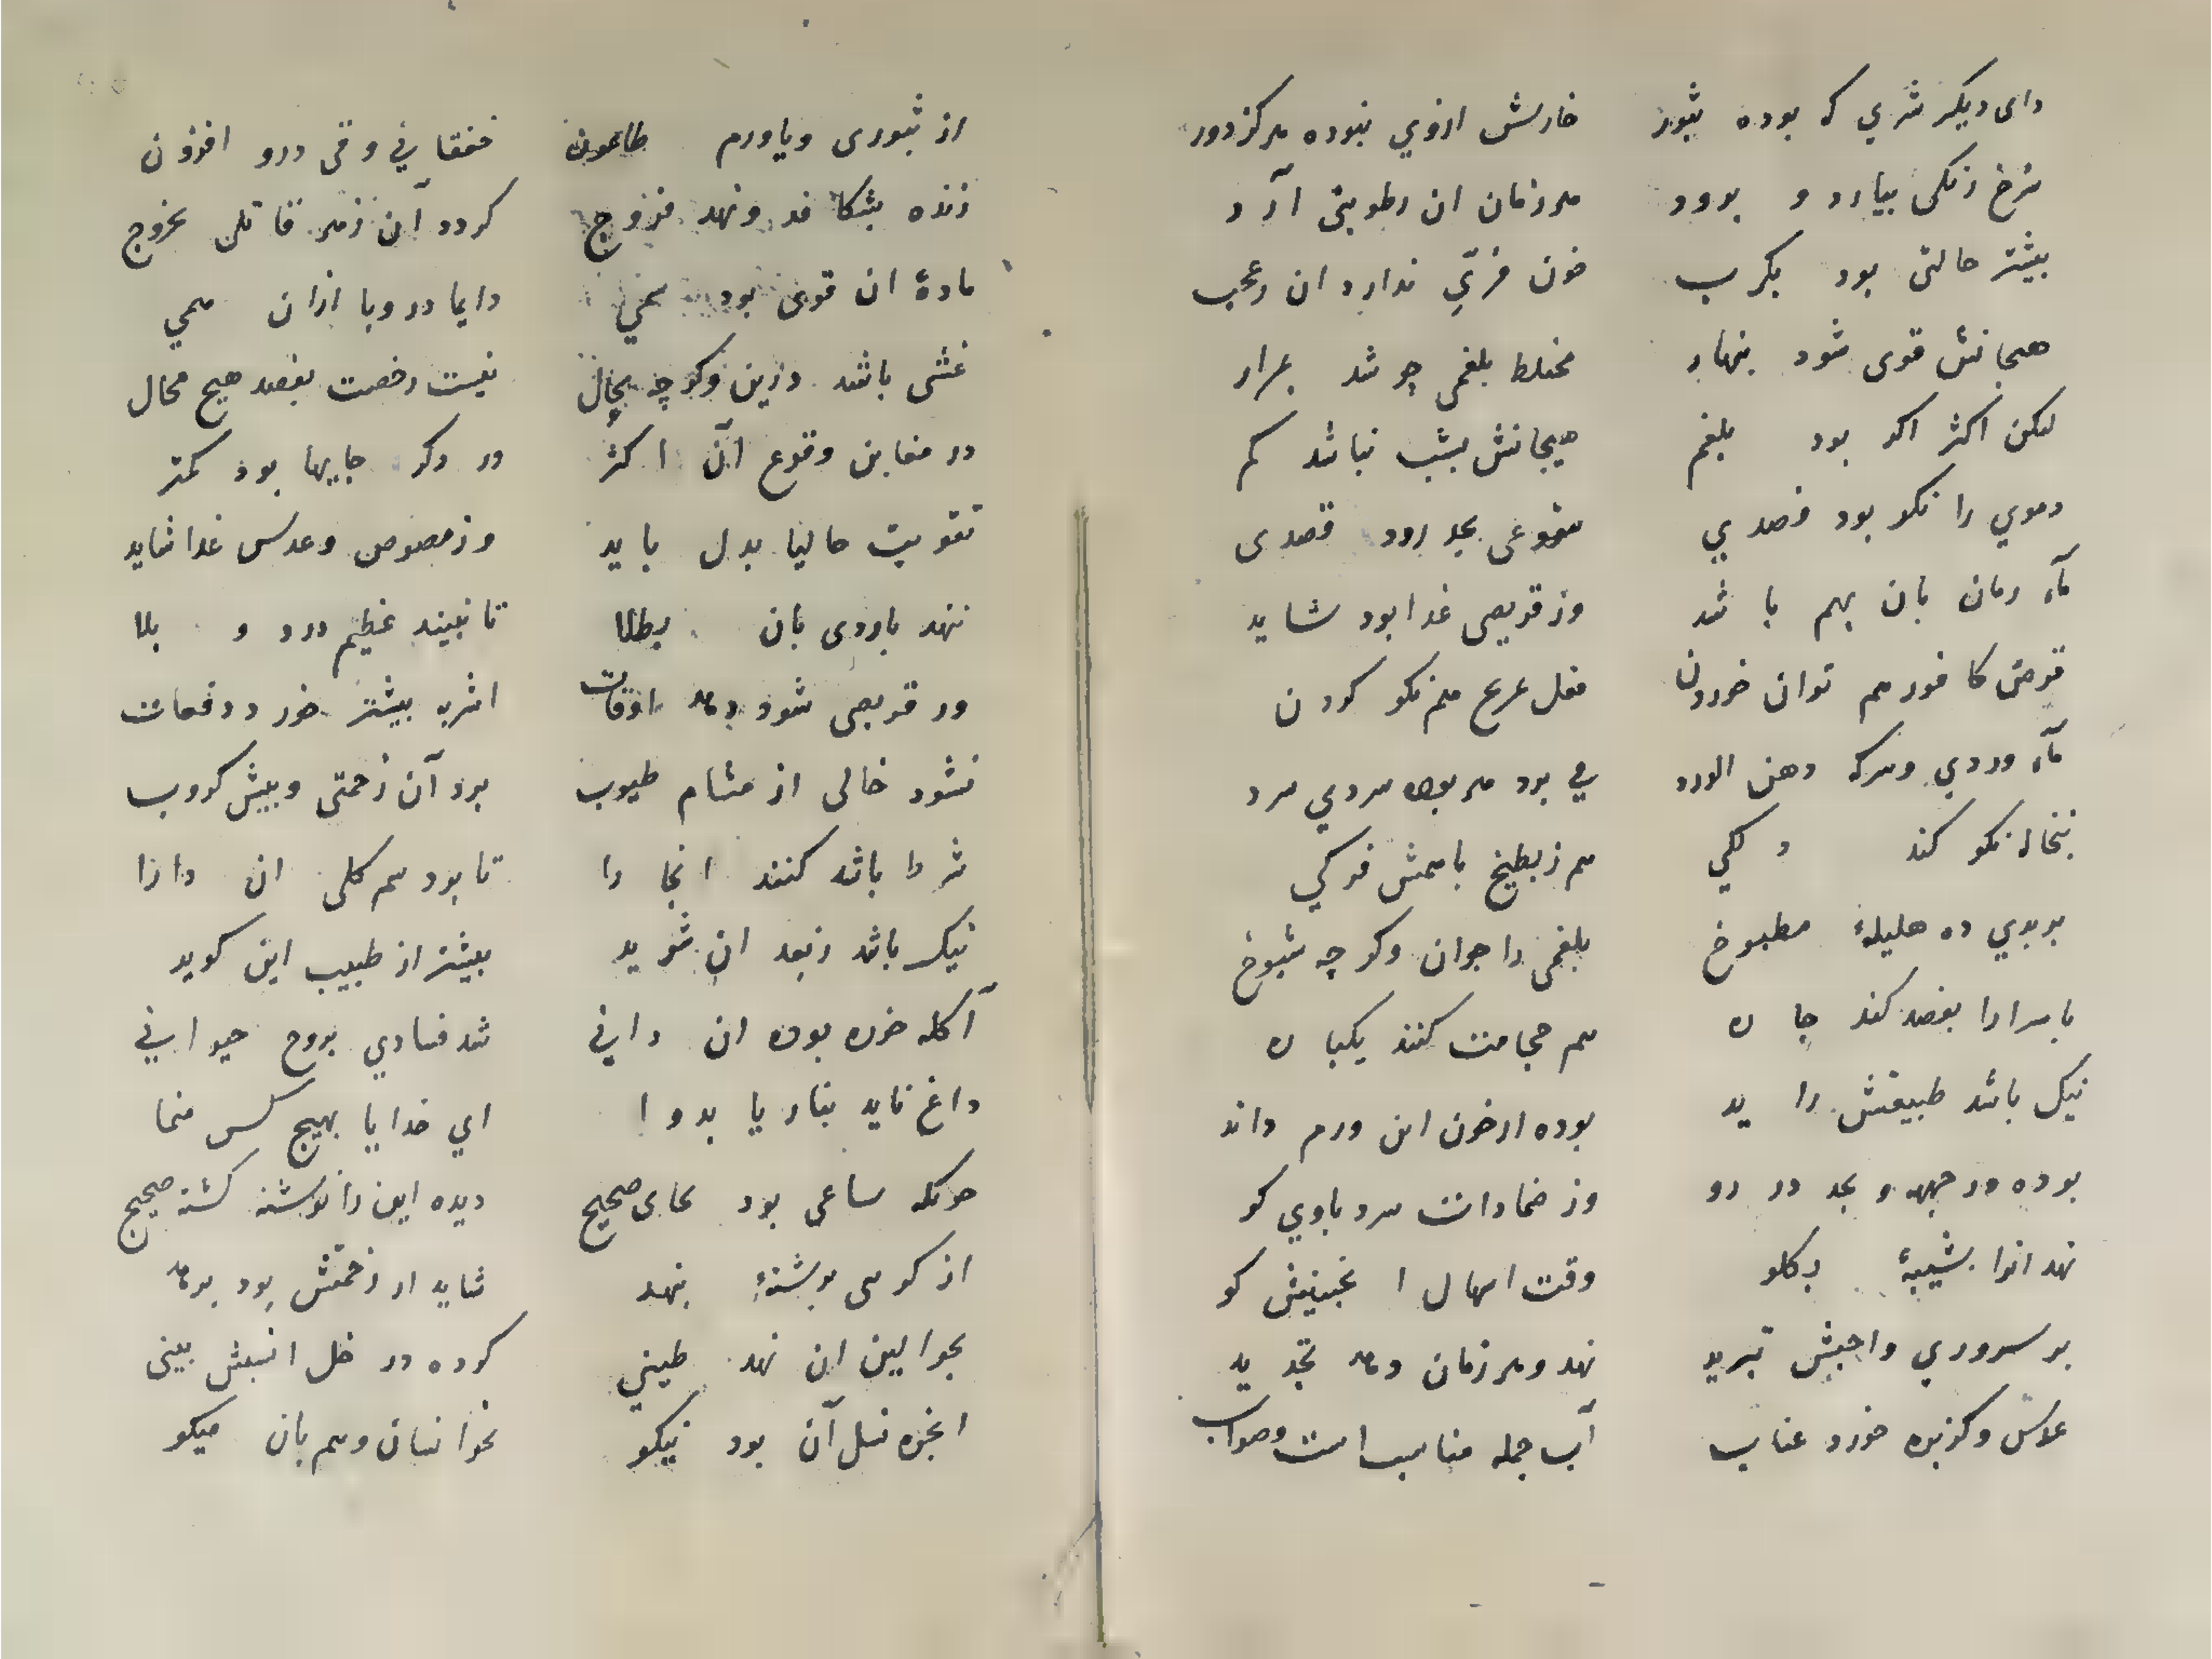 دای دیکر شری که بوده بثور خارش ازوی نبوده هرکز دور
سرخ رنکی بیارد و بروو هر زمان ان رطوبتی آرد
بیشتر حالتی بود بکرب خون مری ندارد ان عجب
هیجانش قوی شود بنهار مختلط بلغمی چو شد
لیکن اکثر اکر بود بلغم هیجانش بشب نباشد کم
دموی را نکو بود فصدی بحد رود قصدی
ماء رمان بان بهم باشد وز قریصی غذا بود شاید
قرص کافور هم توان خوردن هم نکو کردن
ماء وردی وسرکه دهن الورد بود سردی سرد
نکو کند و هم زبطیخ باسمش فوکی
بربری ده هلیلۀ مطبوخ بلغمی را جوان وکر چه شیوخ
یا سرارا بفصد کند چاره هم حجامت کنند یکباره
نیک باشد طبیعتش راید بوده ازخون این ورم داند
بوده در جبهه و بحد در رو وز ضمادات سرد باوی کو
نهد انرا بشیبۀ بکلو وقت اسهال ا نجبینش کو
بر سروری واجبش تبرید نهد وهر زمان دهد تجدید
عدس وکزبره خورد عناب آب جمله مناسب است وصواب
از بثوری ویا ورم طاعون خفقانی وقی درو افزون
زنده بشکافد ونهد فروج کردد آن زهر قاتل بخروج
مادۀ ان قوی بود سمی دایما در وبا ازان همی
غشی باشد وزین وکر چه بحال نیست رخصت بفصد هیچ محال
در مغابن وقوع آن اکثر ور دکر جایها بود کمتر
تقویت حالیا بدل باید وز مصوص وعدس غذا شاید
ننهد باردی بان بطلا تا نبیند عظیم درد و بلا
ور قریصی شود دهد اوقات اشربه بیشتر خورد دفعات
نشود خالی از مشام طیوب برد آن زحمتی وبیش کروب
شرط باشد کنند انجا را تا بود سم کلی ان دارا
نیک باشد زبعد ان شوید بیشتر از طبیب این کوید
آکله خره بوده ان دانی شد فسادی بروح حیوانی
داغ ناید بنار یا بدوا ای خدایا بهیچ کس منما
حونکه ساعی بود بجای صحیح دیده این را نوشته کشته صحیح
از کرسی برشتۀ بنهد شاید از زحمتش بود برهد
بحوالین ان نهد طینی کرده در خل انسبش بینی
انجره نسل آن بود نیکو نخوانسان وهم بان میکو